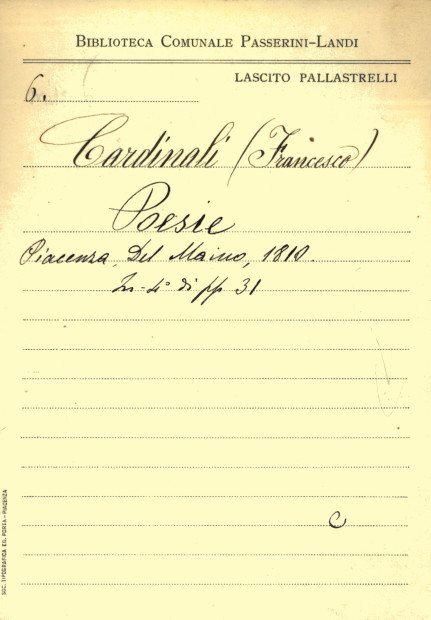 BIBLIOTECA COMUNALE PASSERINI-LANDI
LASCITO PALLASTRELLI
6.
Cardinali (Francesco)
Poesie
Piacenza, Del Maino, 1810.
In-4° di pp 31
C
SOC. TIPOGRAFICA ED. PORTA - PIACENZA